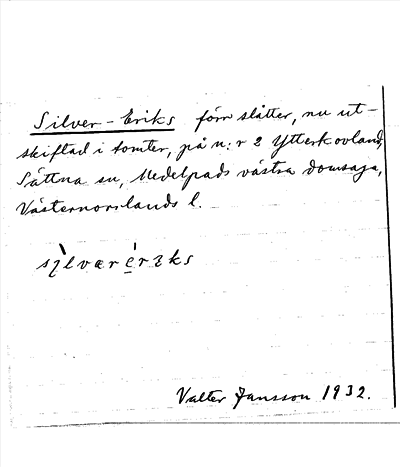 Silver-Eriks förr slåtter, nu ut-
skiftad i tomter, på n:r 2 Ytterkovland,
Sättna sn, Medelpads västra domsaga,
Västernorrlands l.
sìlvarérɩks
Valter Jansson 1932.